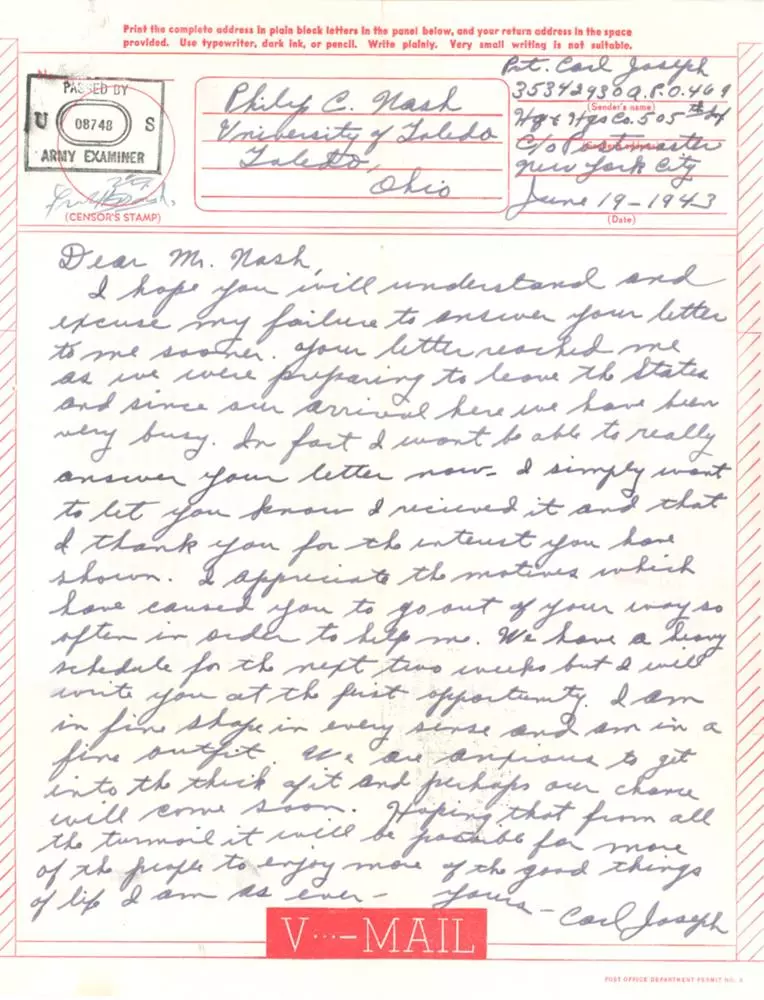 Print the complete address in plain block letters in the panel below, and your return address in the space
provided. Use typewriter, dark ink, or pencil. Write plainly. Very small writing is not suitable.
PASSED BY
U 08748 S
ARMY EXAMINER
(CENSOR'S STAMP)
Philip C. Nash
University of Toledo
Toledo,
Ohio
Pvt. Carl Joseph
35342930 A.P.O. 469
(Sender's name)
Hq & Hqs Co. 505th
C/o Postmaster
New York City
June 19-1943
(Date)
Dear Mr. Nash,
I hope you will understand and
excuse my failure to answer your letter
to me sooner. Your letter reached me
as we were preparing to leave the States
and since our arrival here we have been
very busy. In fact I wont be able to really
answer your letter now- I simply want
to let you know I recieved it and that
I thank you for the interest you have
shown. I appreciate the motives which
have caused you to go out of your way so
often in order to help me. We have a heavy
schedule for the next two weeks but I will
write you at the first opportunity. I am
in fine shape in every sense and am in a
fine outfit. We are anxious to get
into the thick of it and perhaps our chance
will come soon. Hoping that from all
the turmoil it will be possible for more
of the people to enjoy more of the good things
of life I am as ever- Yours-
Carl Joseph
V···–MAIL
POST OFFICE DEPARTMENT PERMIT NO. 5